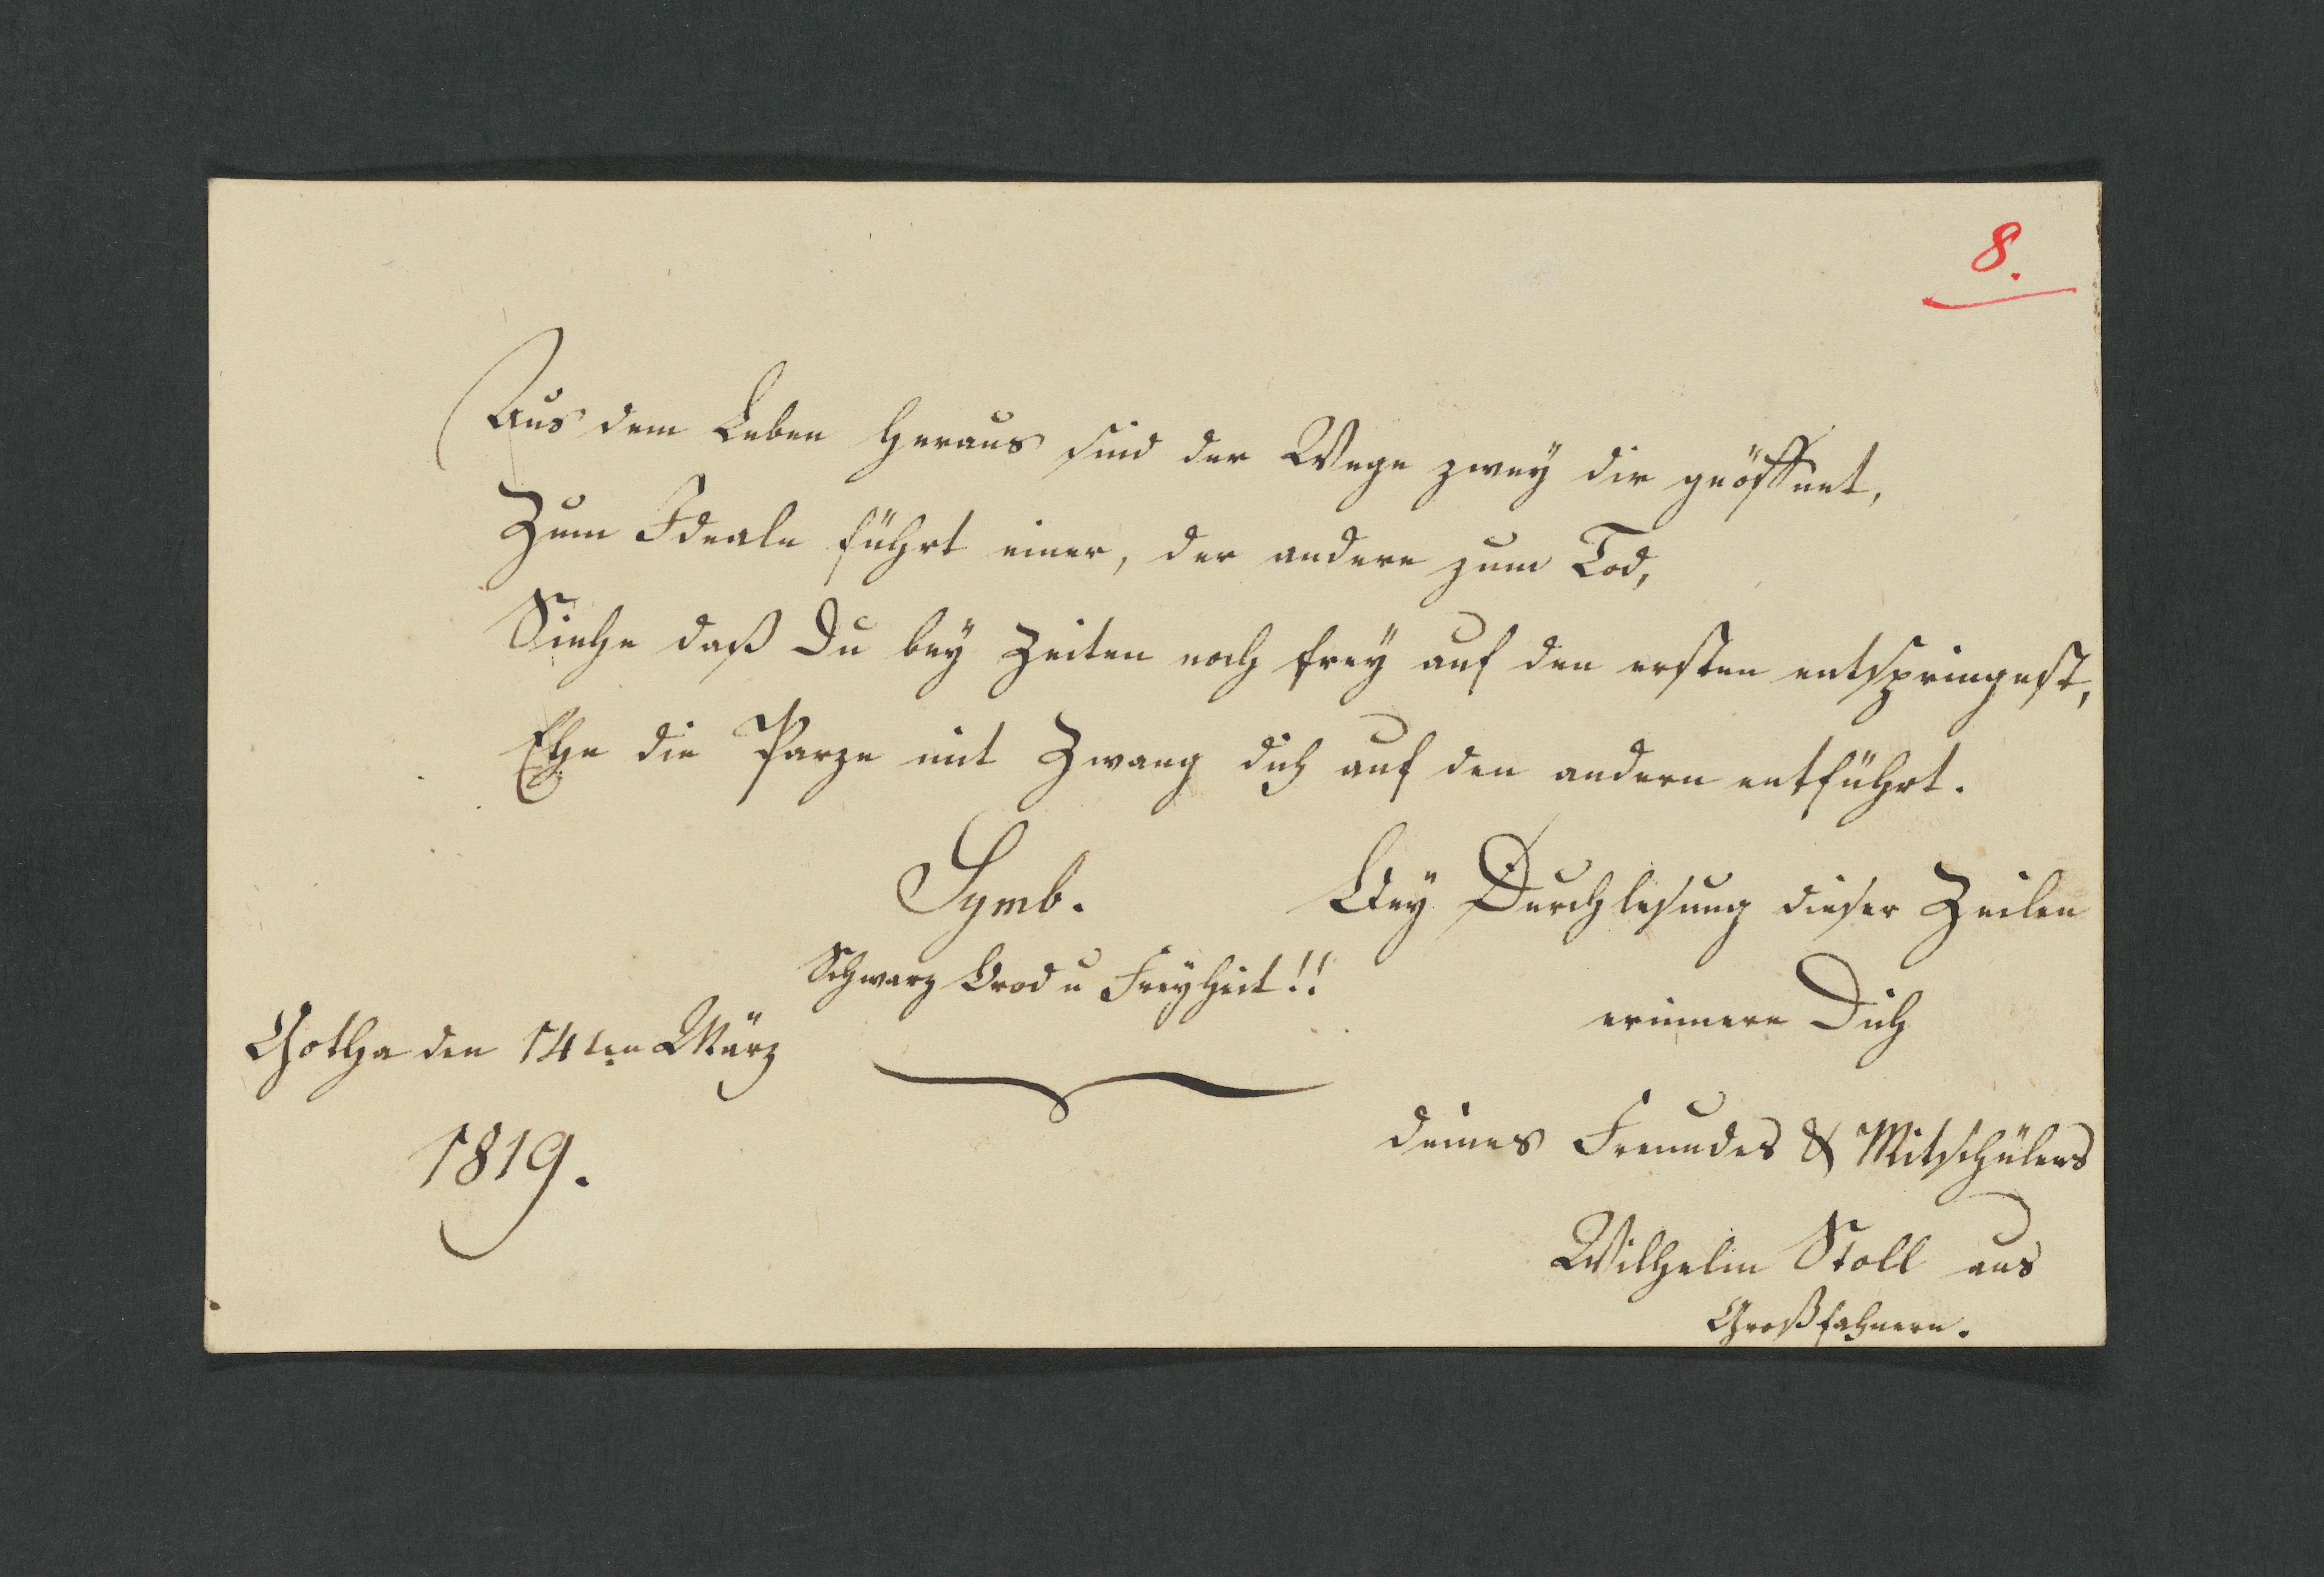 8.
Aus dem Leben heraus sind der Wege zwey dir geöffnet,
Zum Ideale führt einer, der andere zum Tod,
Siehe daß Du bey Zeiten noch frey auf den ersten entspringest,
Ehe die Parze mit Zwang dich auf den andern entführt.
Symb.
Schwarz Brod u Freyheit!!
Gotha den 14ten März
1819.
Bey Durchlesung dieser Zeilen
erinnere Dich
deines Freundes & Mitschülers
Wilhelm Stoll aus
Großfahnern.